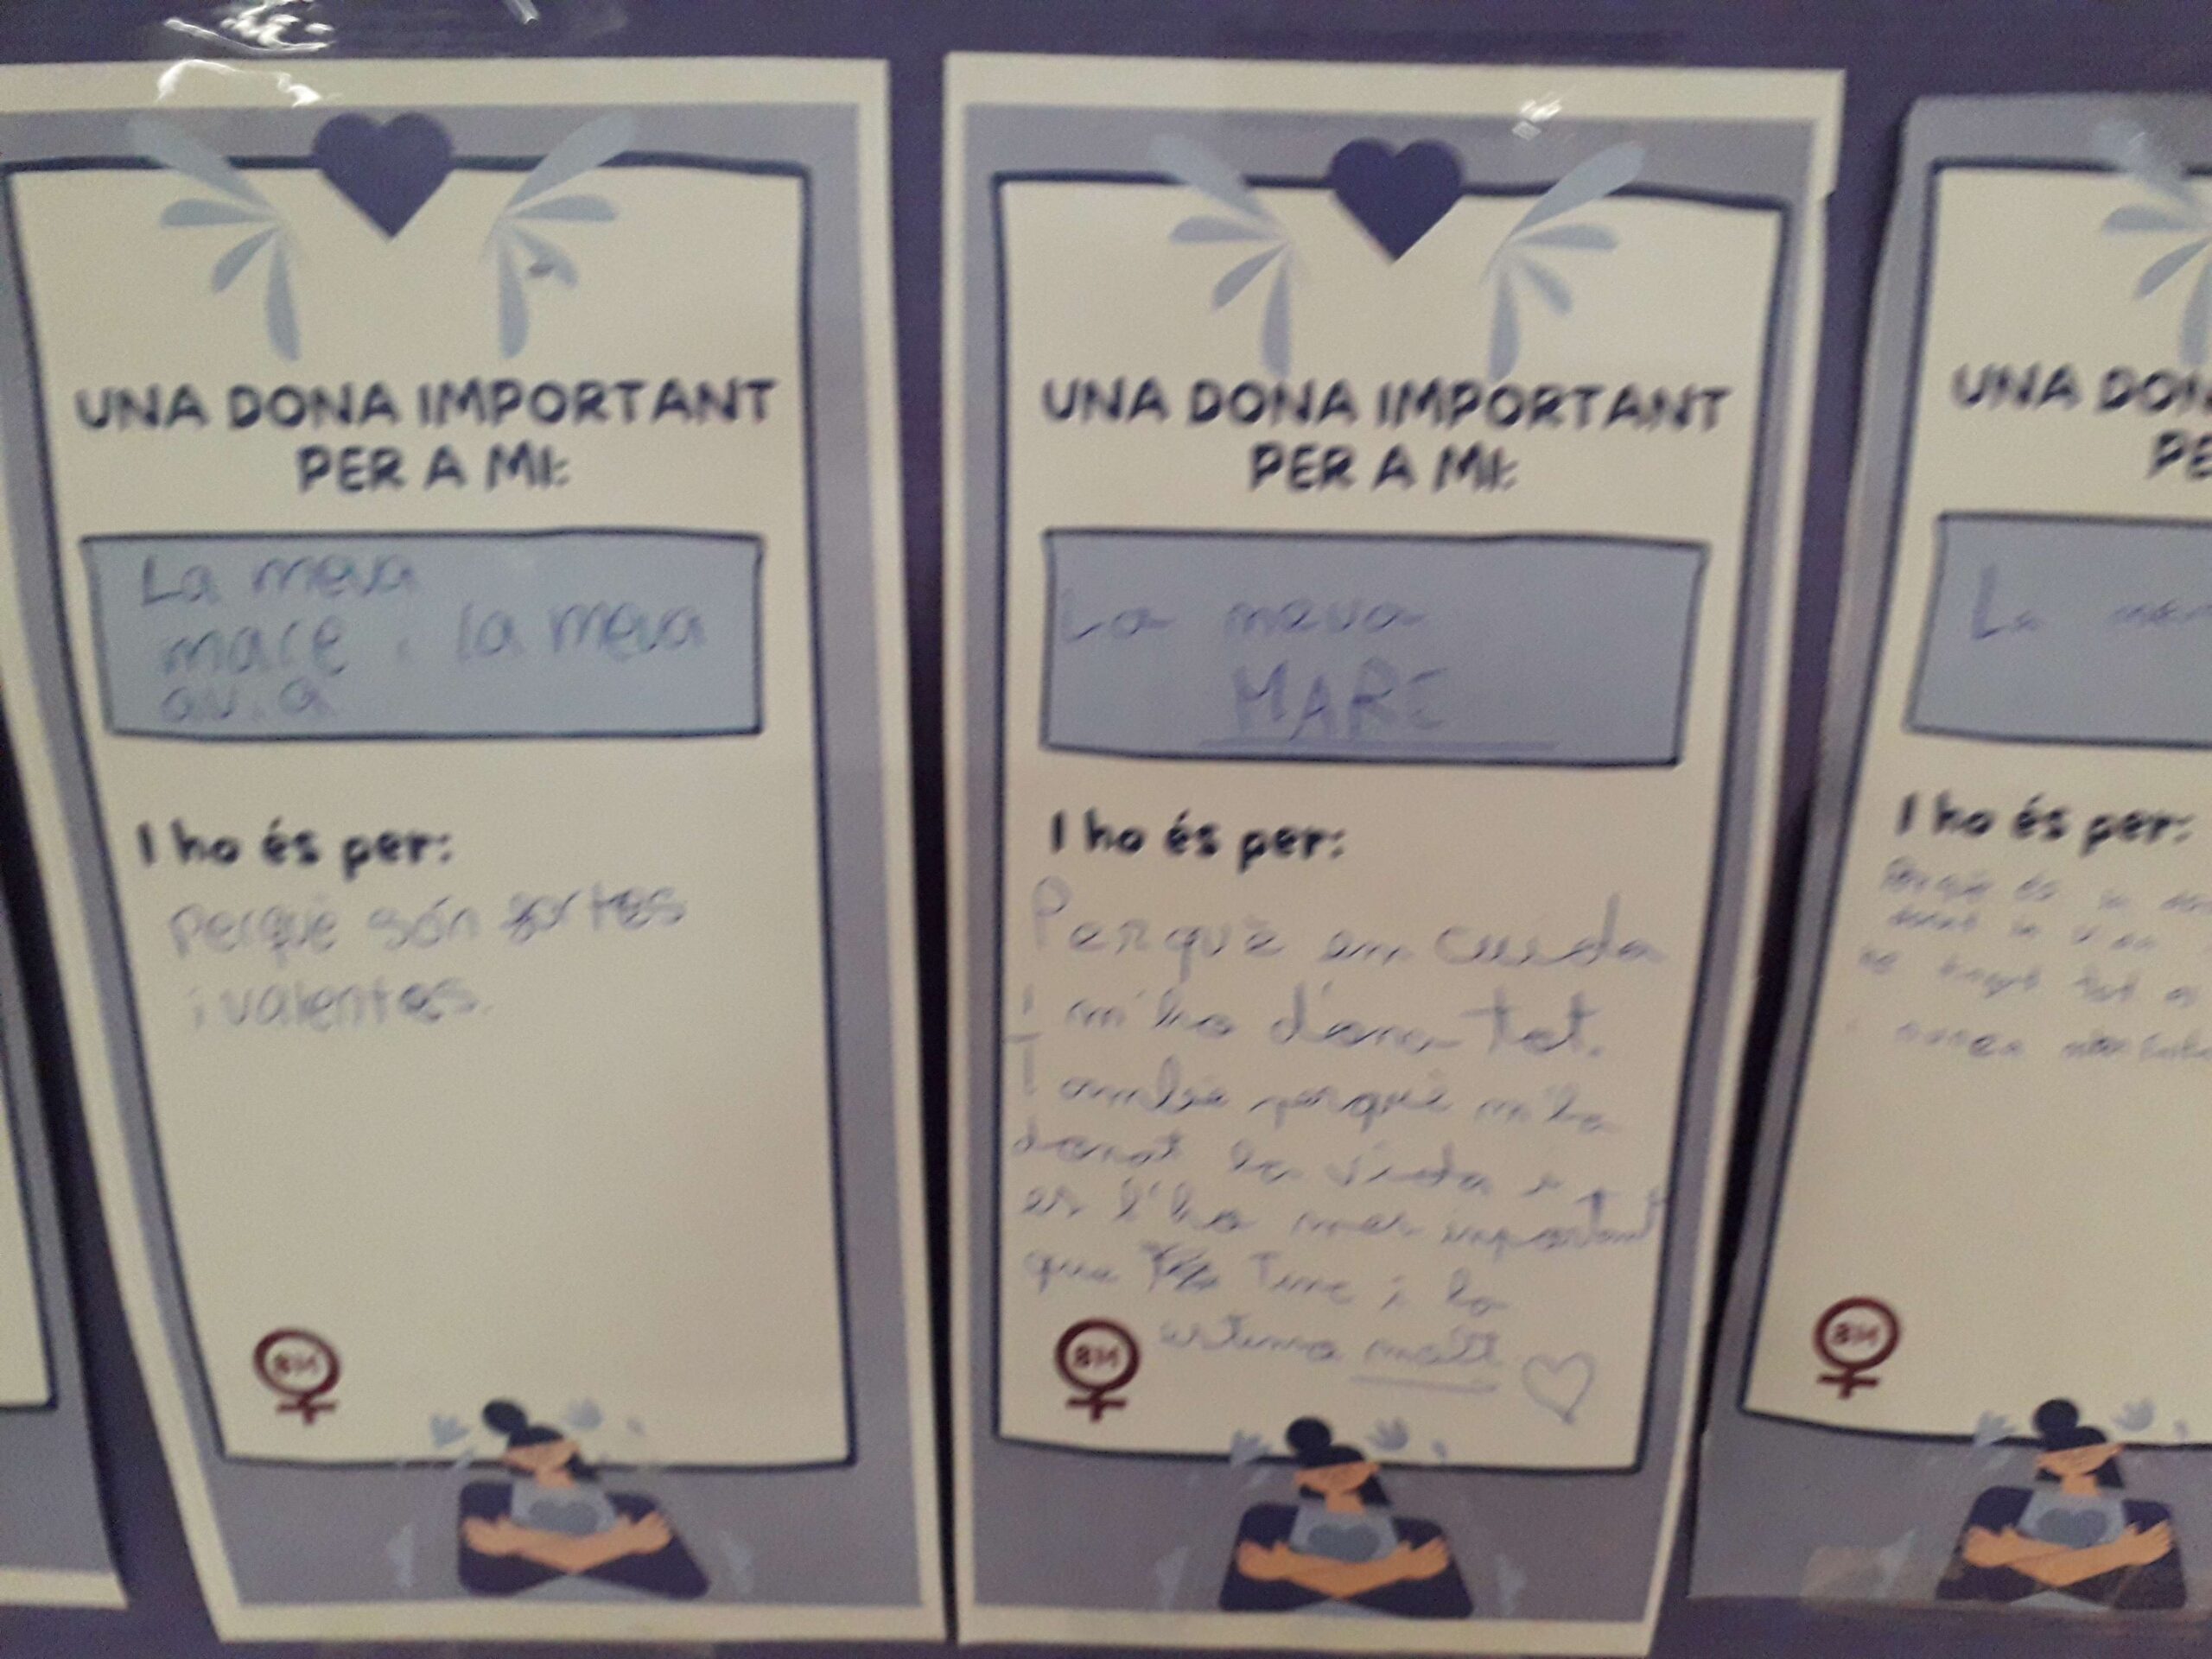 UNA DONA IMPORTANT
PER A MI:
La meva
mare i la meva
avia
I ho és per:
Perquè són fortes
i valentes.
8M
UNA DONA IMPORTANT
PER A MI:
La meva
MARE
I ho és per:
Perquè em cuida
i m'ho dona tot.
També perquè m'ha
donat la vida i tot
es l'ho mes important
que Tinc i la
estimo molt
8M
UNA DON
PE
La mev
I ho és per:
Perquè és la
donat la
tot
i nunca
8M